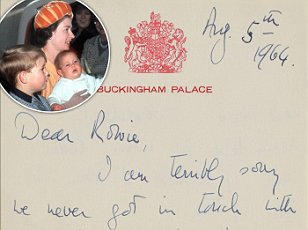 Aug. 5th
1964
BUCKINGHAM PALACE
Dear Rowie,
I am terribly sorry
we never got in touch with